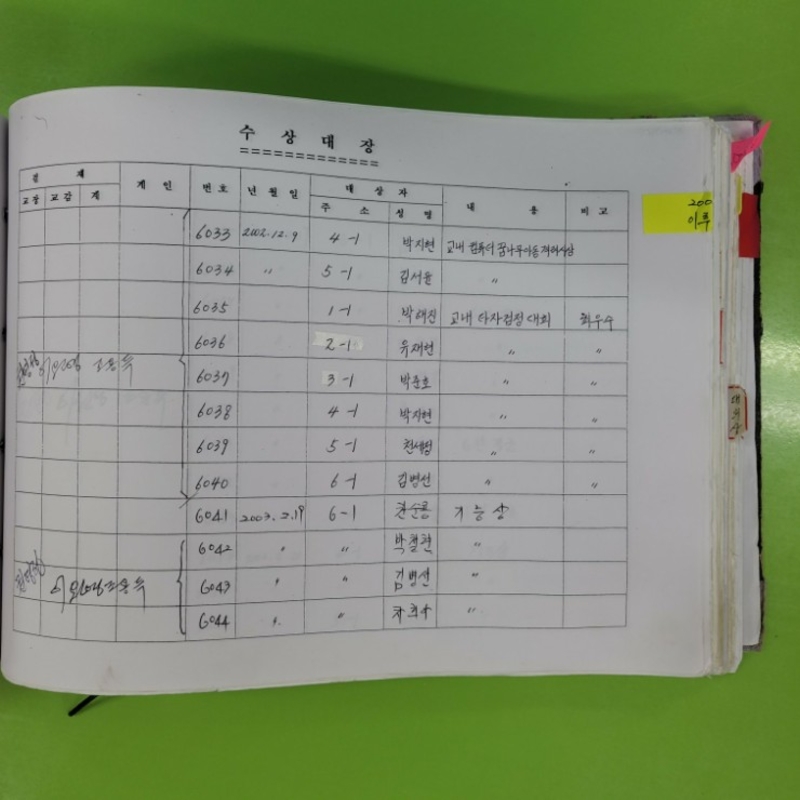 수 상 대 장
결 재 계 인 번호 년 월 일 대 상 자 내 용 비 고
교장 교감 계 주 소 성 명
6033 2002.12.9 4-1 박지현 교내 컴퓨터 꿈나무아동
6034 〃 5-1 김서윤 〃
6035 1-1 박해진 교내 타자검정 대회 최우수
6036 2-1 유재현 〃 〃
6037 3-1 박준호 〃 〃
6038 4-1 박지현 〃 〃
6039 5-1 천세정 〃 〃
6040 6-1 김병선 〃 〃
6041 2003.2.19 6-1 기능상
6042 〃 〃 박철환 〃
6043 〃 〃 김병선 〃
6044 〃 〃 〃
200
이후
대외상